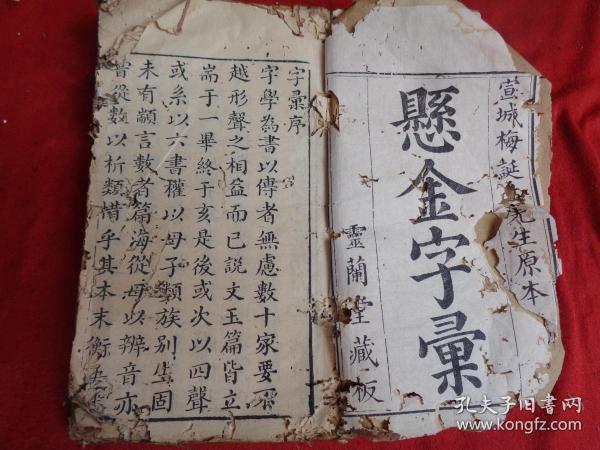 宣城梅誕生先生原本
懸金字彙
靈蘭堂藏板
字彙序
字學為書以傳者無慮數十家要不
越形聲之相益而已說文玉篇皆立
耑于一畢終于亥是後或次以四聲
或系以六書權以母子類族別生固
未有顓言數者篇海從母以辨音亦
嘗從數以析類惜乎其本末衡
孔夫子旧书网
www.kongfz.com